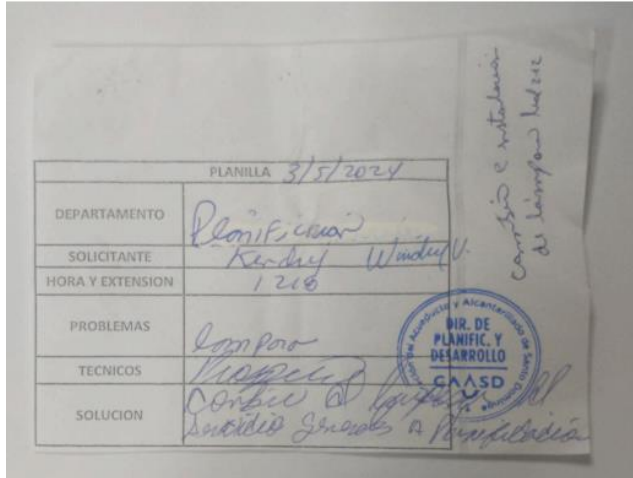 PLANILLA 3/5/2024
DEPARTAMENTO Planificación
SOLICITANTE Kendry Windry V.
HORA Y EXTENSION 1218
PROBLEMAS Lampara
TECNICOS
SOLUCION Cambio
Servicio Generales A Planificación
Cambio e instalacion
de lámpara led
Acueducto y Alcantarillado de Santo Domingo
DIR. DE
PLANIFIC. Y
DESARROLLO
CAASD